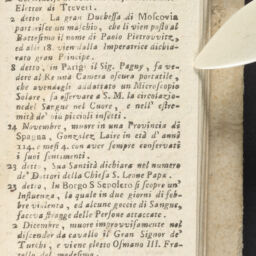 Elettor di Treveri.
2 detto. La gran Duchessa di Moscovia
partorisce un maschio, che li vien posto al
Battesimo il nome di Paolo Pietrowitz,
ed alli 18. vien dalla Imperatrice dichia-
rato gran Principe.
8 detto, in Parigi il Sig. Pagny, fa ve-
dere al Re una Camera oscura portatile,
che avendogli addattato un Microscopio
Solare, fa osservare a S. M. la circolazio-
ne del Sangue nel Cuore, e nell' estre-
mità de' più piccioli insetti.
14 Novembre, muore in una Provincia di
Spagna, Gonzalez Laire in età d' anni
114. e mesi 4. con aver sempre conservati
i suoi sentimenti.
23 detto, Sua Santità dichiara nel numero
de' Dottori della Chiesa S. Leone Papa.
23 detto, In Borgo S Sepolcro si scopre un'
Influenza, la quale in due giorni di feb-
bre violenta, ed alcune goccie di Sangue,
faceva stragge delle Persone attaccate.
2 Dicembre, muore improvvisamente nel
discender da cavallo il Gran Signor de'
Turchi, e viene eletto Osmano III. Fra-
tello del medesimo.